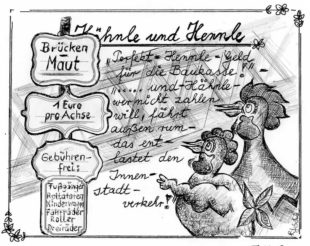 Hähnle und Hennle
Brücken-
Maut
1 Euro
pro Achse
Gebühren-
frei:
Fußgänger
Rollatoren
Kinderwagen
Fahrräder
Roller
Dreiräder
"Perfekt-Hennle-Geld
für die Baukasse!"-
"..... und-Hähnle-
wer nicht zahlen
will, fährt
außen rum-
das ent-
lastet den
Innen-
stadt-
verkehr!"